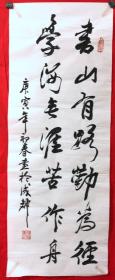 書山有路勤為徑
學海无涯苦作舟
庚寅年初春